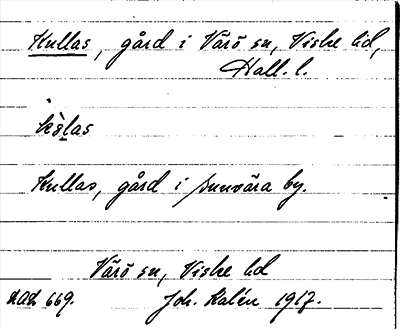 Kullas, gård i Värö sn, Viske hd,
Hall. l.
Kullas, gård i Sunvära by.
Värö sn, Viske hd
DAL 669. Joh. Kalén 1917.